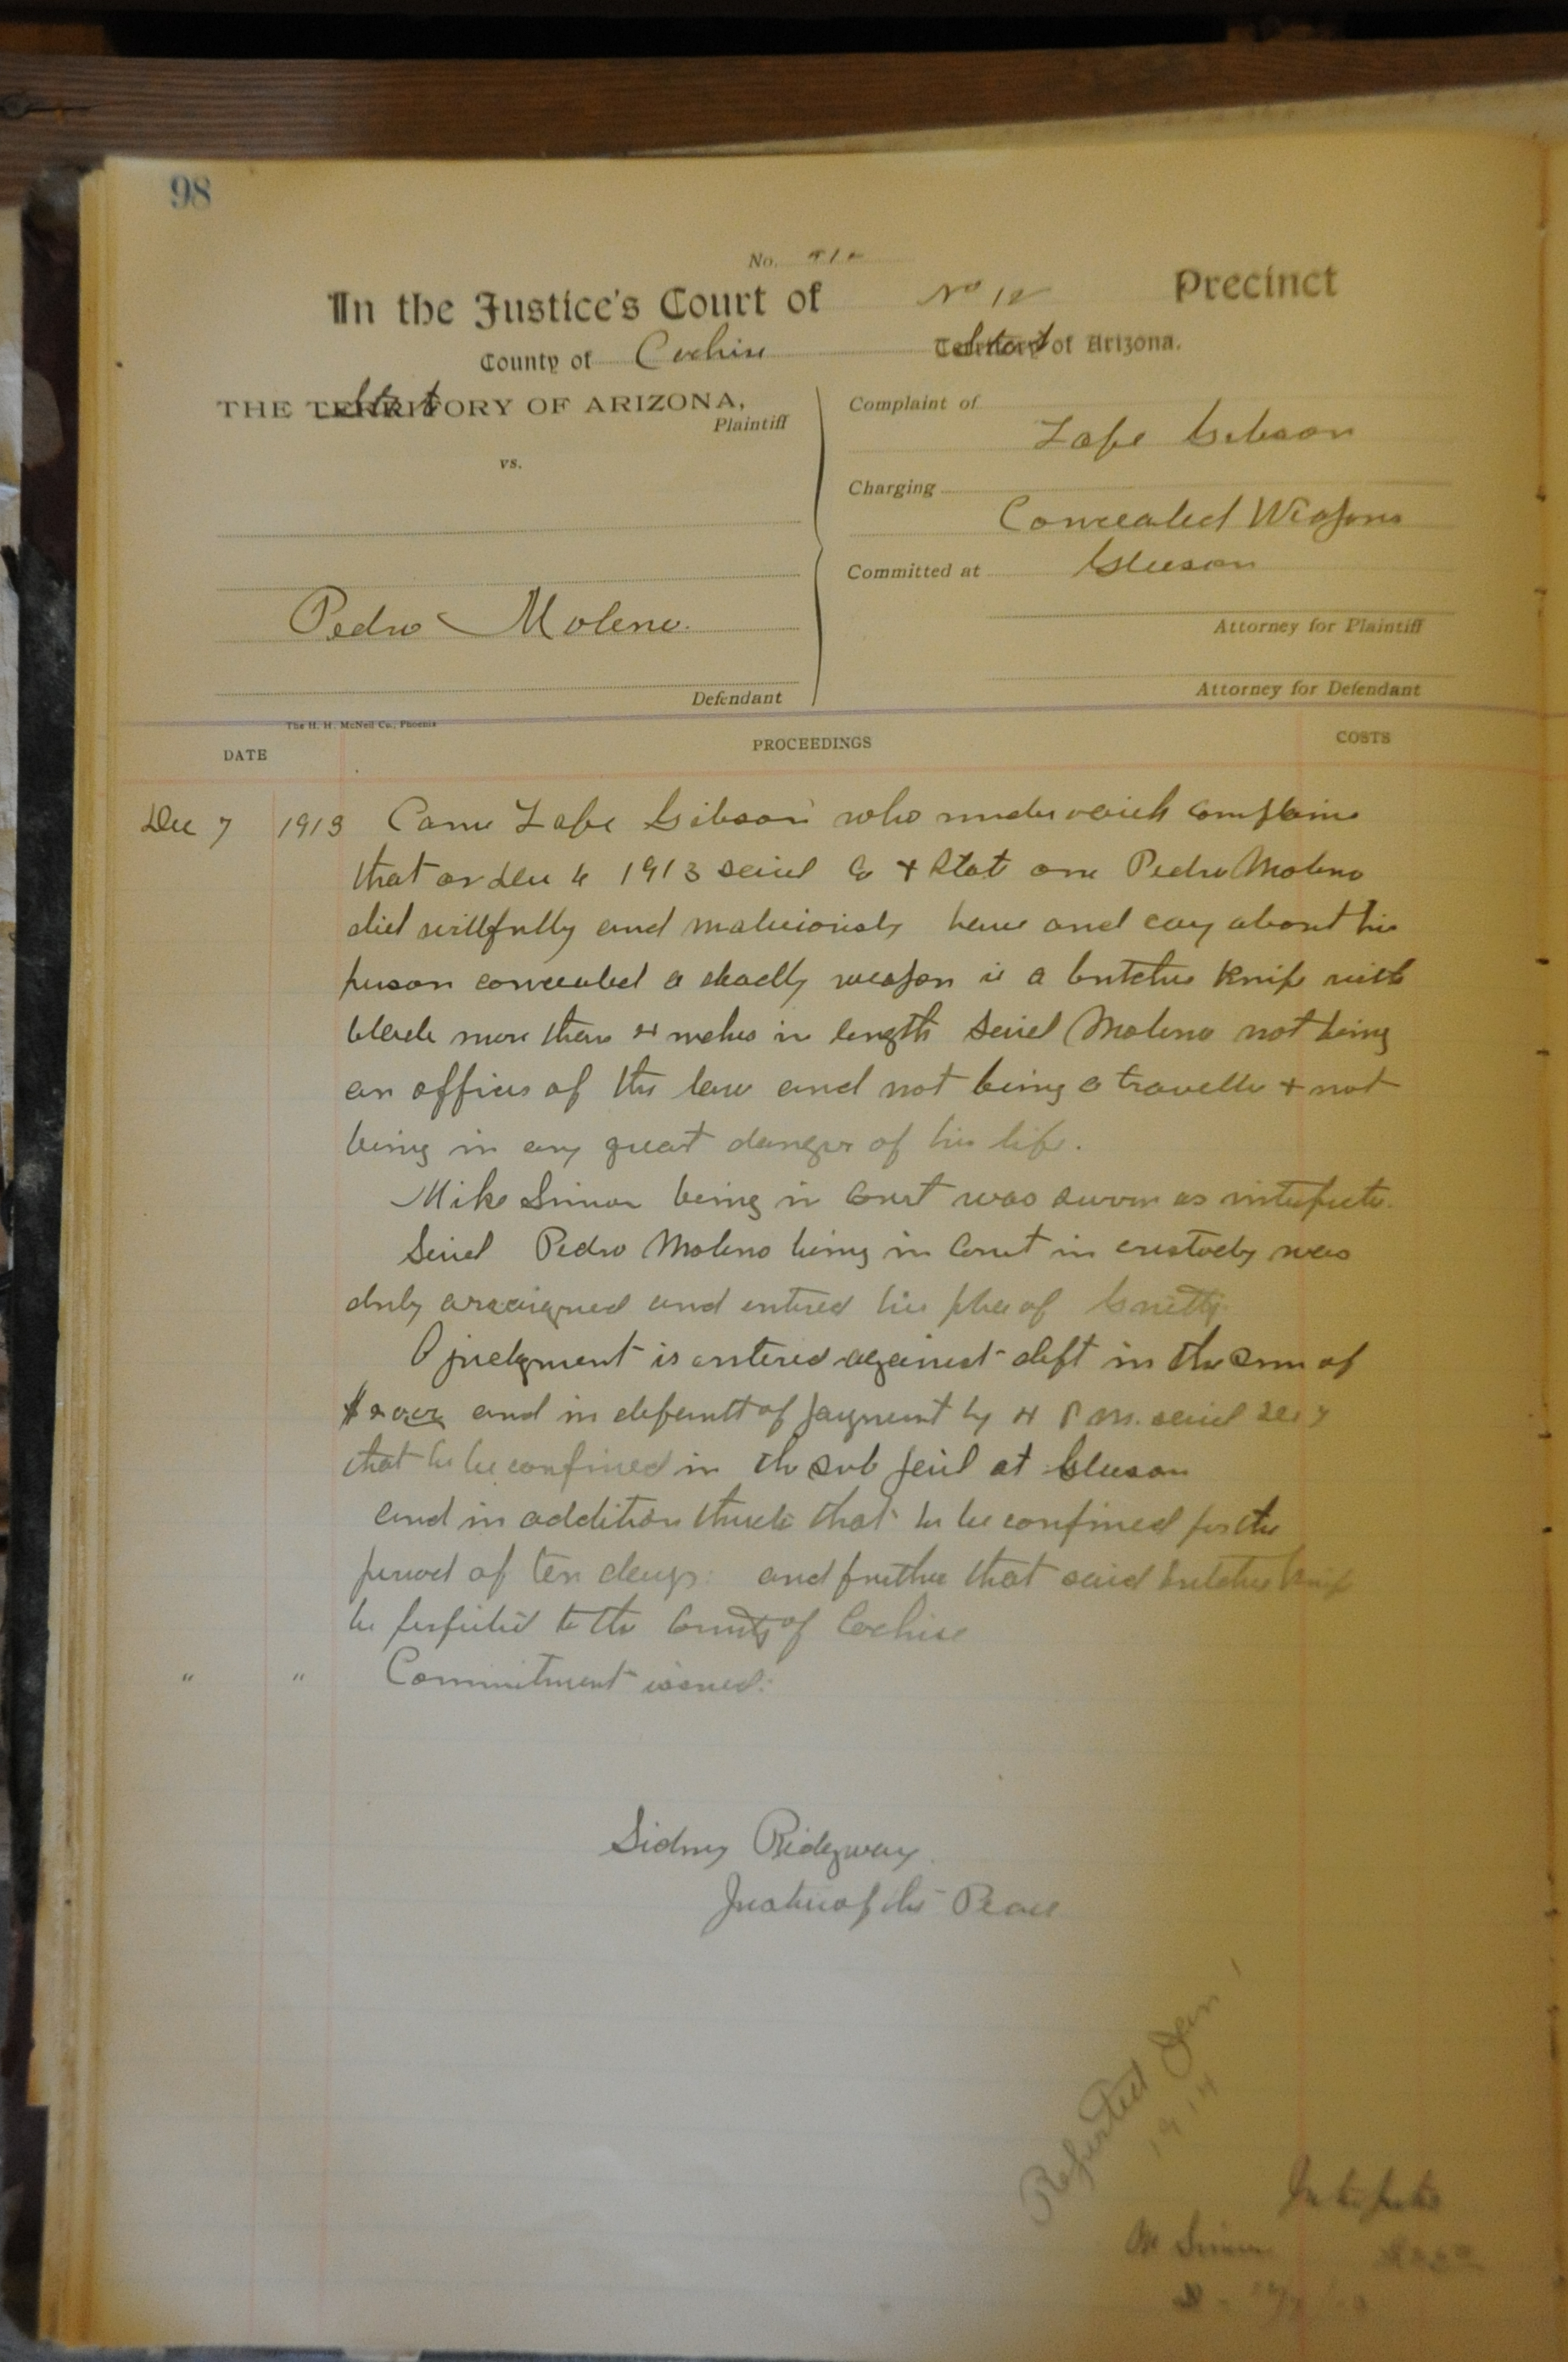 98
No.
In the Justice's Court of No 12 Precinct
County of Cochise State of Arizona.
THE State OF ARIZONA,
Plaintiff
vs.
Pedro Moleno.
Defendant
Complaint of
Lafe Gibson
Charging
Concealed Weapons
Committed at Gleeson
Attorney for Plaintiff
Attorney for Defendant
The H. H. McNeil Co., Phoenix
DATE PROCEEDINGS COSTS
Dec 7 1913 Came Lafe Gibson who under oath complains
that on Dec 6 1913 said Co + State one Pedro Moleno
did willfully and maliciously have and cary about his
person concealed a deadly weapon ie a butcher Knife with
blade more than 4 inches in length said Moleno not being
an officer of the law and not being a traveller + not
being in any great danger of his life.
Mike Simon being in Court was sworn as interpreter.
Said Pedro Moleno being in Court in custody was
duly arraigned and entered his plea of Guilty.
A judgment is entered against deft in the sum of
and in default of payment by 4 P.M. said Dec 7
that he be confined in the sub jail at Gleeson
and in addition thereto that he be confined for the
period of ten days: and further that said butcher knife
be forfeited to the County of Cochise
" " Commitment issued.
Sidney Ridgway.
Justice of the Peace
Reported Jan 1
1914
Interpreter
M Simon